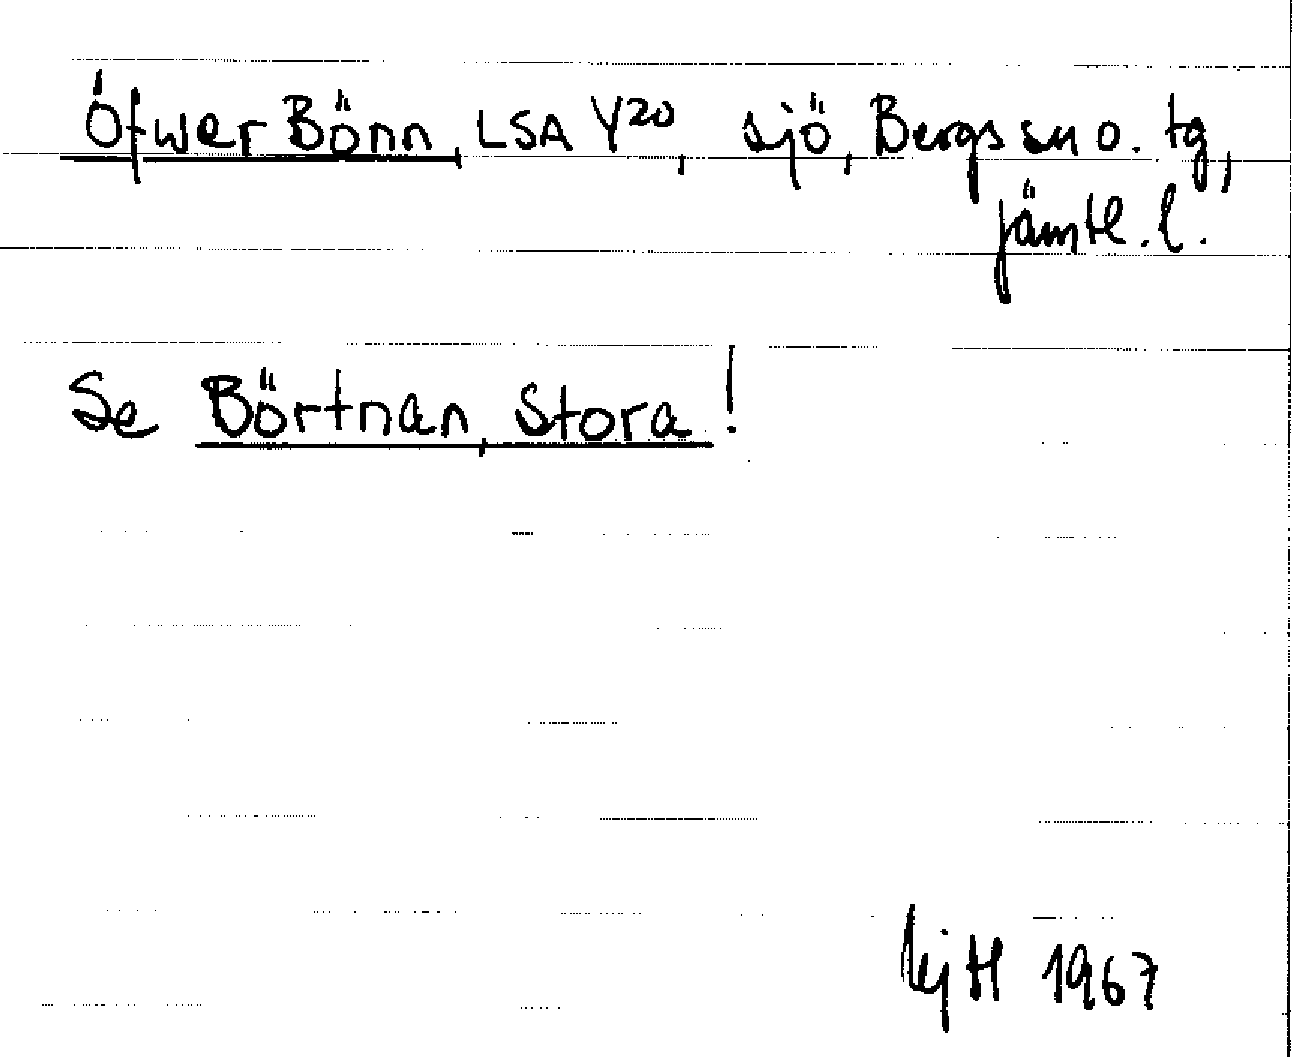 Öfwer Bönn, LSA Y20, sjö, Bergs sn o. tg,
Jämtl. l.
Se Börtnan, Stora!
1967